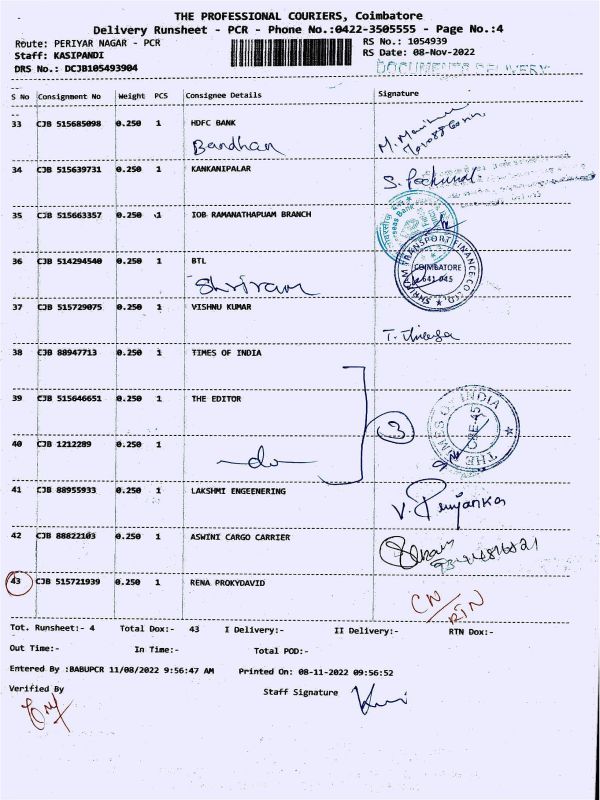 THE PROFESSIONAL COURIERS, Coimbatore
Delivery Runsheet - PCR - Phone No.:0422-3505555 - Page No.:4
Route: PERIYAR NAGAR - PCR RS No.: 1054939
Staff: KASIPANDI RS Date: 08-Nov-2022
DRS No.: DCJB105493904 DOCUMENTS DELIVERY
S No Consignment No Weight PCS Consignee Details Signature
33 CJB 515685098 0.250 1 HDFC BANK
Bandhan
34 CJB 515639731 0.250 1 KANKANIPALAR
35 CJB 515663357 0.250 1 IOB RAMANATHAPUAM BRANCH
36 CJB 514294540 0.250 1 BTL
Shriram
SHRIRAM TRANSPORT FINANCE CO. LTD.
COIMBATORE
641 045
37 CJB 515729075 0.250 1 VISHNU KUMAR
38 CJB 88947713 0.250 1 TIMES OF INDIA
39 CJB 515646651 0.250 1 THE EDITOR
3
THE TIMES OF INDIA
CBE-45
40 CJB 1212289 0.250 1
-do-
41 CJB 88955933 0.250 1 LAKSHMI ENGEENERING
V. Priyanka
42 CJB 88822103 0.250 1 ASWINI CARGO CARRIER
43 CJB 515721939 0.250 1 RENA PROKYDAVID
CN/RTN
Tot. Runsheet:- 4 Total Dox:- 43 I Delivery:- II Delivery:- RTN Dox:-
Out Time:- In Time:- Total POD:-
Entered By :BABUPCR 11/08/2022 9:56:47 AM Printed On: 08-11-2022 09:56:52
Verified By Staff Signature